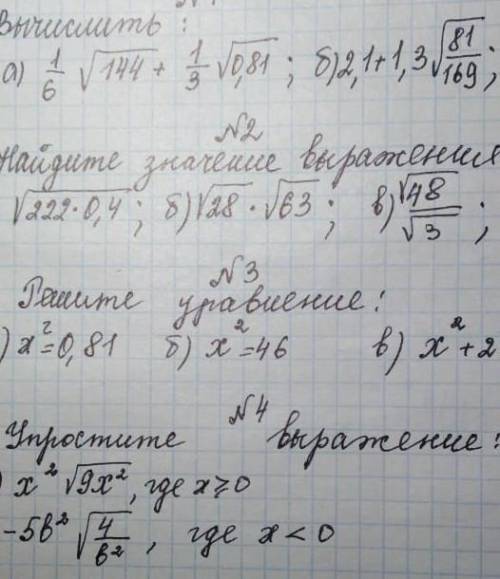 Вычислить:
а) 1/6 √144 + 1/3 √0,81; б) 2,1+1,3√81/169;
№2
Найдите значение выражения
√222·0,4; б) √28 · √63; в) √48/√3;
№3
Решите уравнение:
) x²=0,81 б) x²=46 в) x²+2
№4
Упростите выражение:
) x²√9x², где x⩾0
-5b²√4/b², где x<0